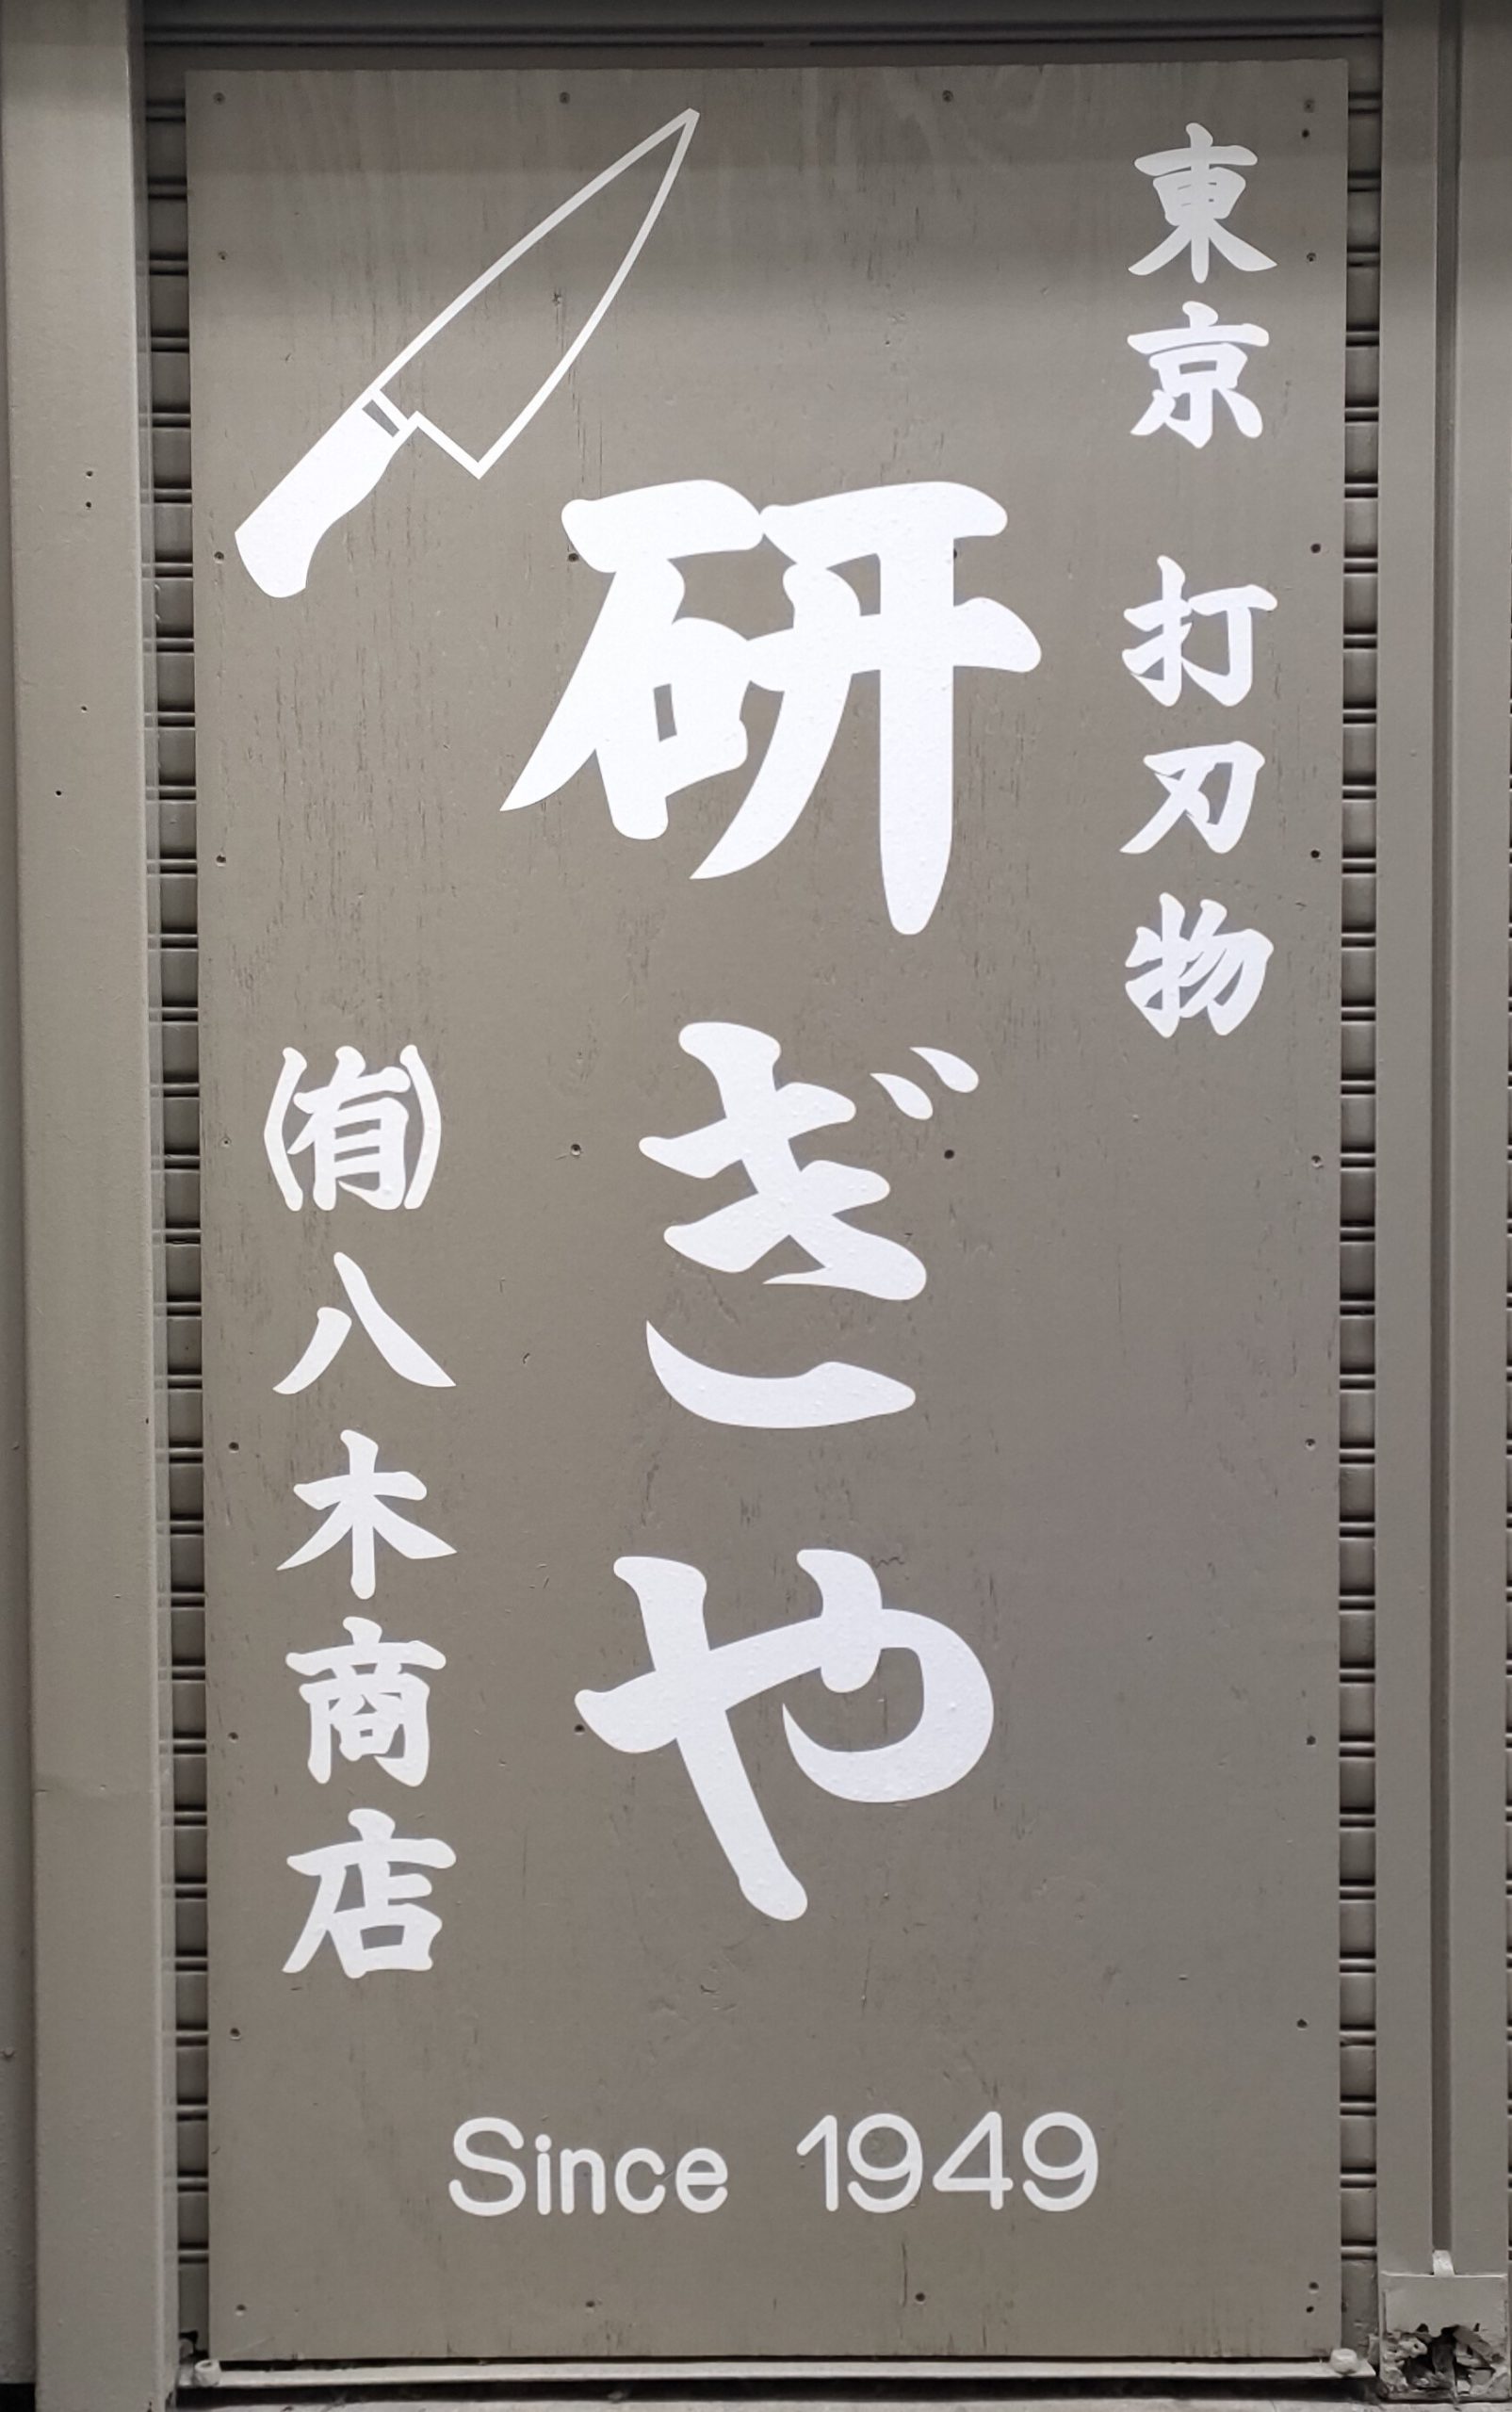 東京 打刃物
研ぎや
㈲八木商店
Since 1949